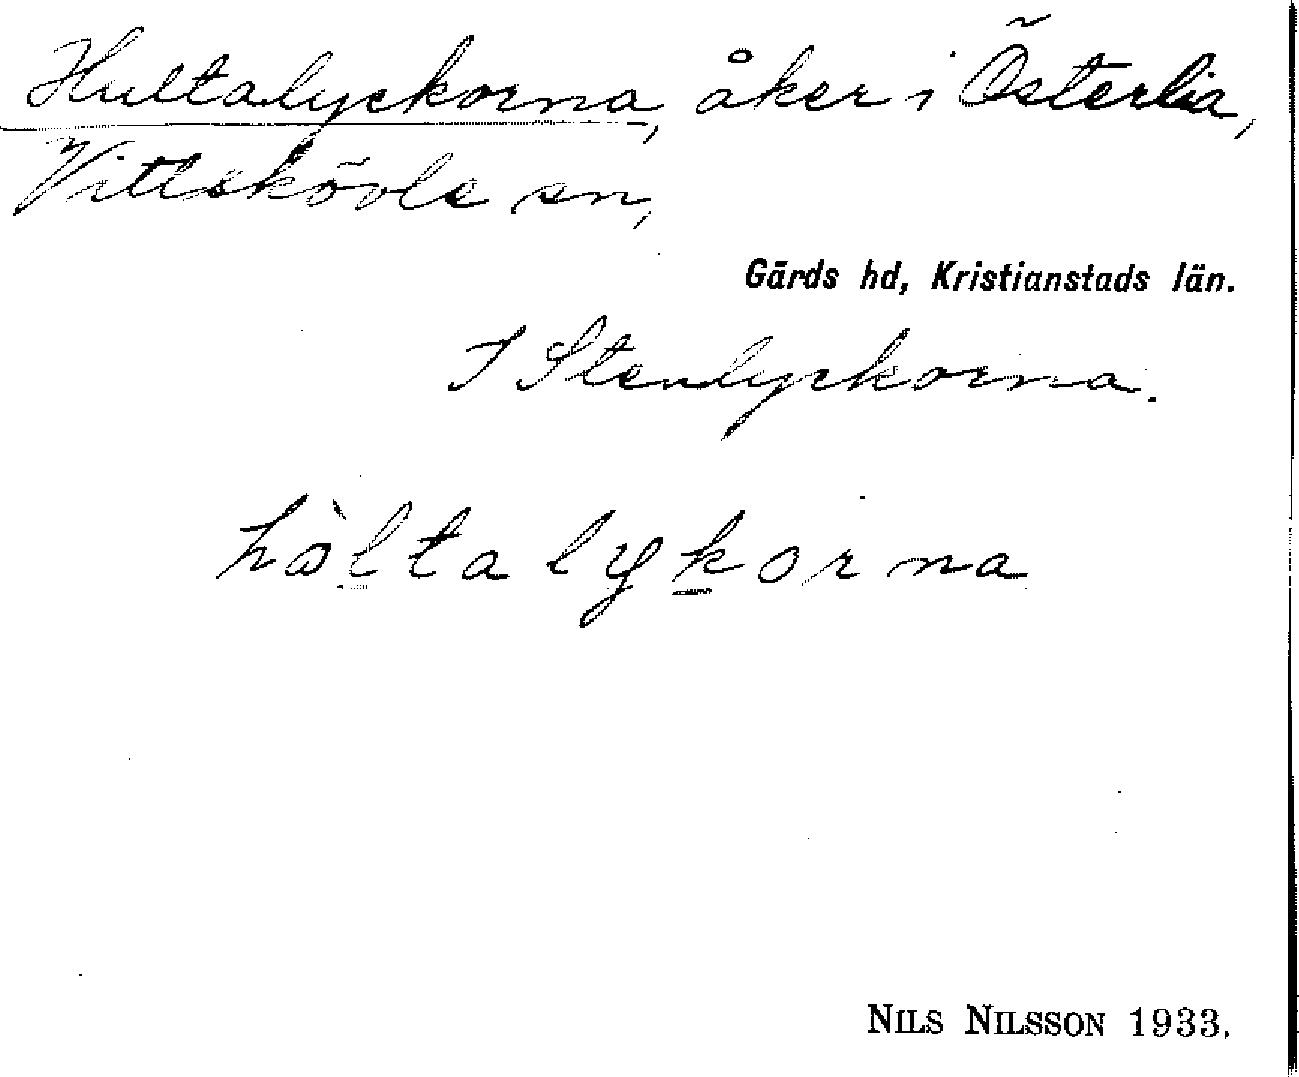 Hultalyckorna, åker i Österlia,
Vittskövle sn,
Gärds hd, Kristianstads län.
I Stenlyckorna.
hòltalykorna
NILS NILSSON 1933.